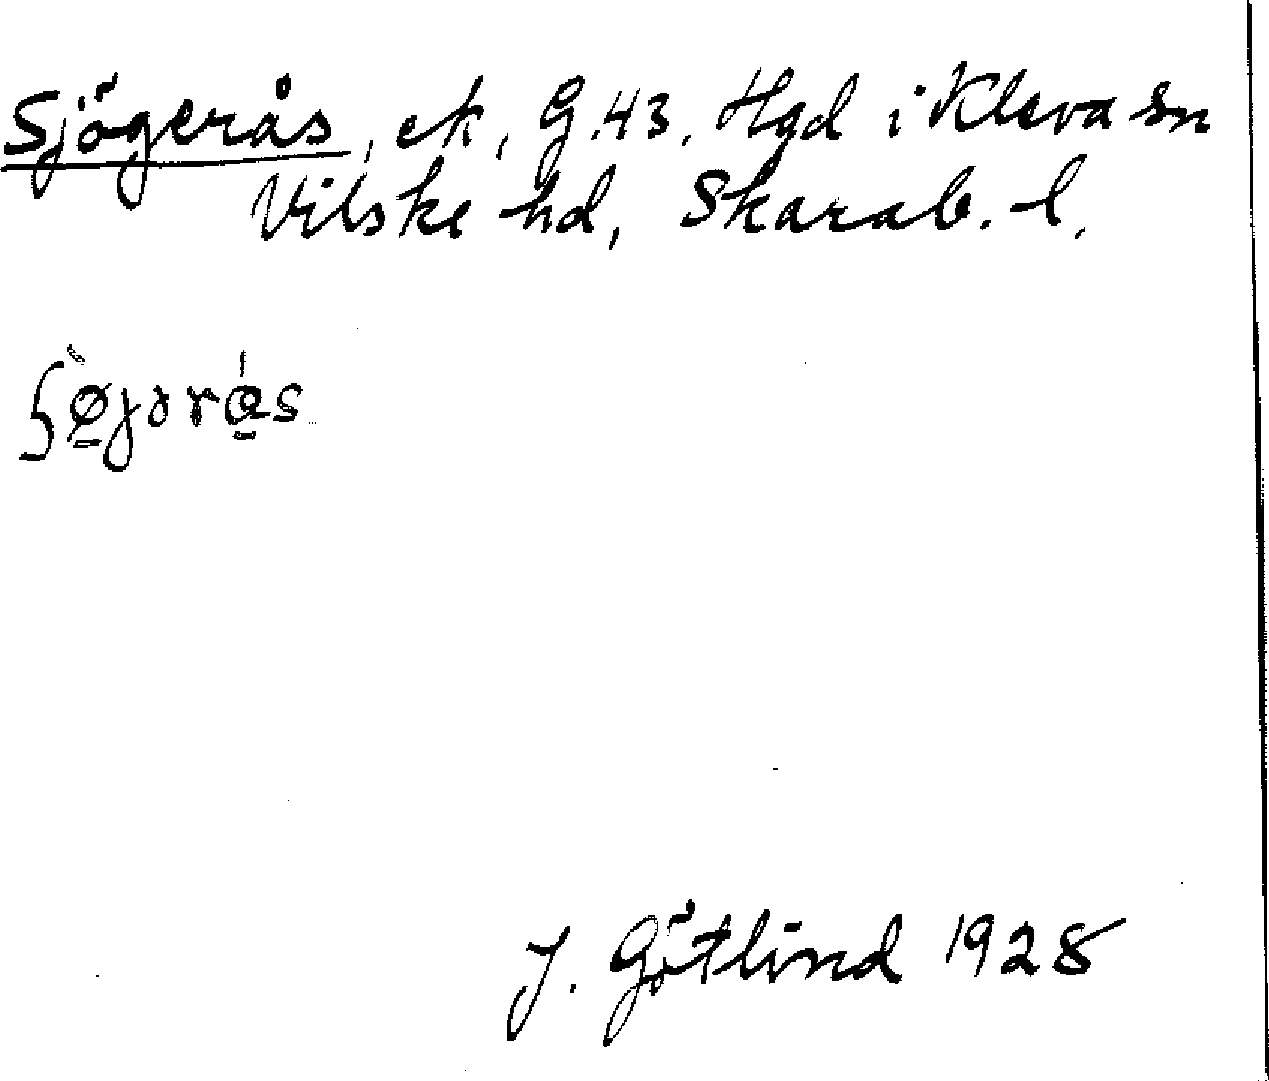 Sjögerås, ek, G.43, Hgd i Kleva sn
Vilske hd, Skarab. l.
J. Götlind 1928